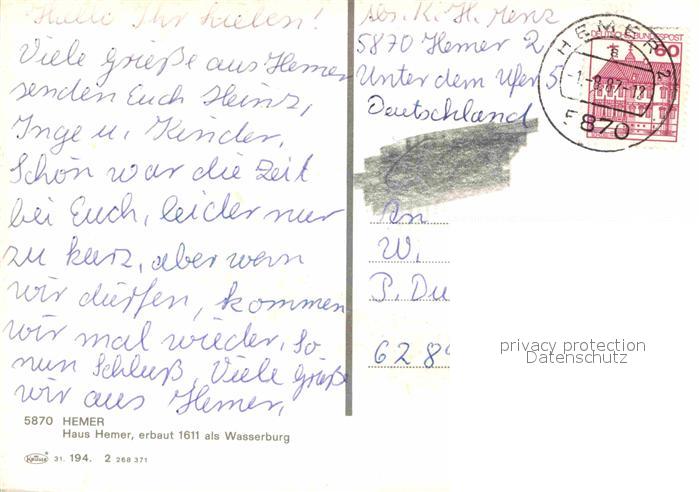 Hallo Ihr Lieben!
Viele Grieße aus Hemer
senden Euch Heinz,
Inge u. Kinder.
Schön war die Zeit
bei Euch, leider nur
zu kurz, aber wenn
wir dürfen, kommen
wir mal wieder. So
nun Schluß, Viele Grieße
wir aus Hemer.
5870 HEMER
Haus Hemer, erbaut 1611 als Wasserburg
Krüger 31. 194. 2 268 371
Abs. K. H. Menz
5870 Hemer 2
Unter dem Ufer 5
Deutschland
An
W.
P. Du
6 2 8
HEMER 2
5870
DEUTSCHE BUNDESPOST
60
privacy protection
Datenschutz